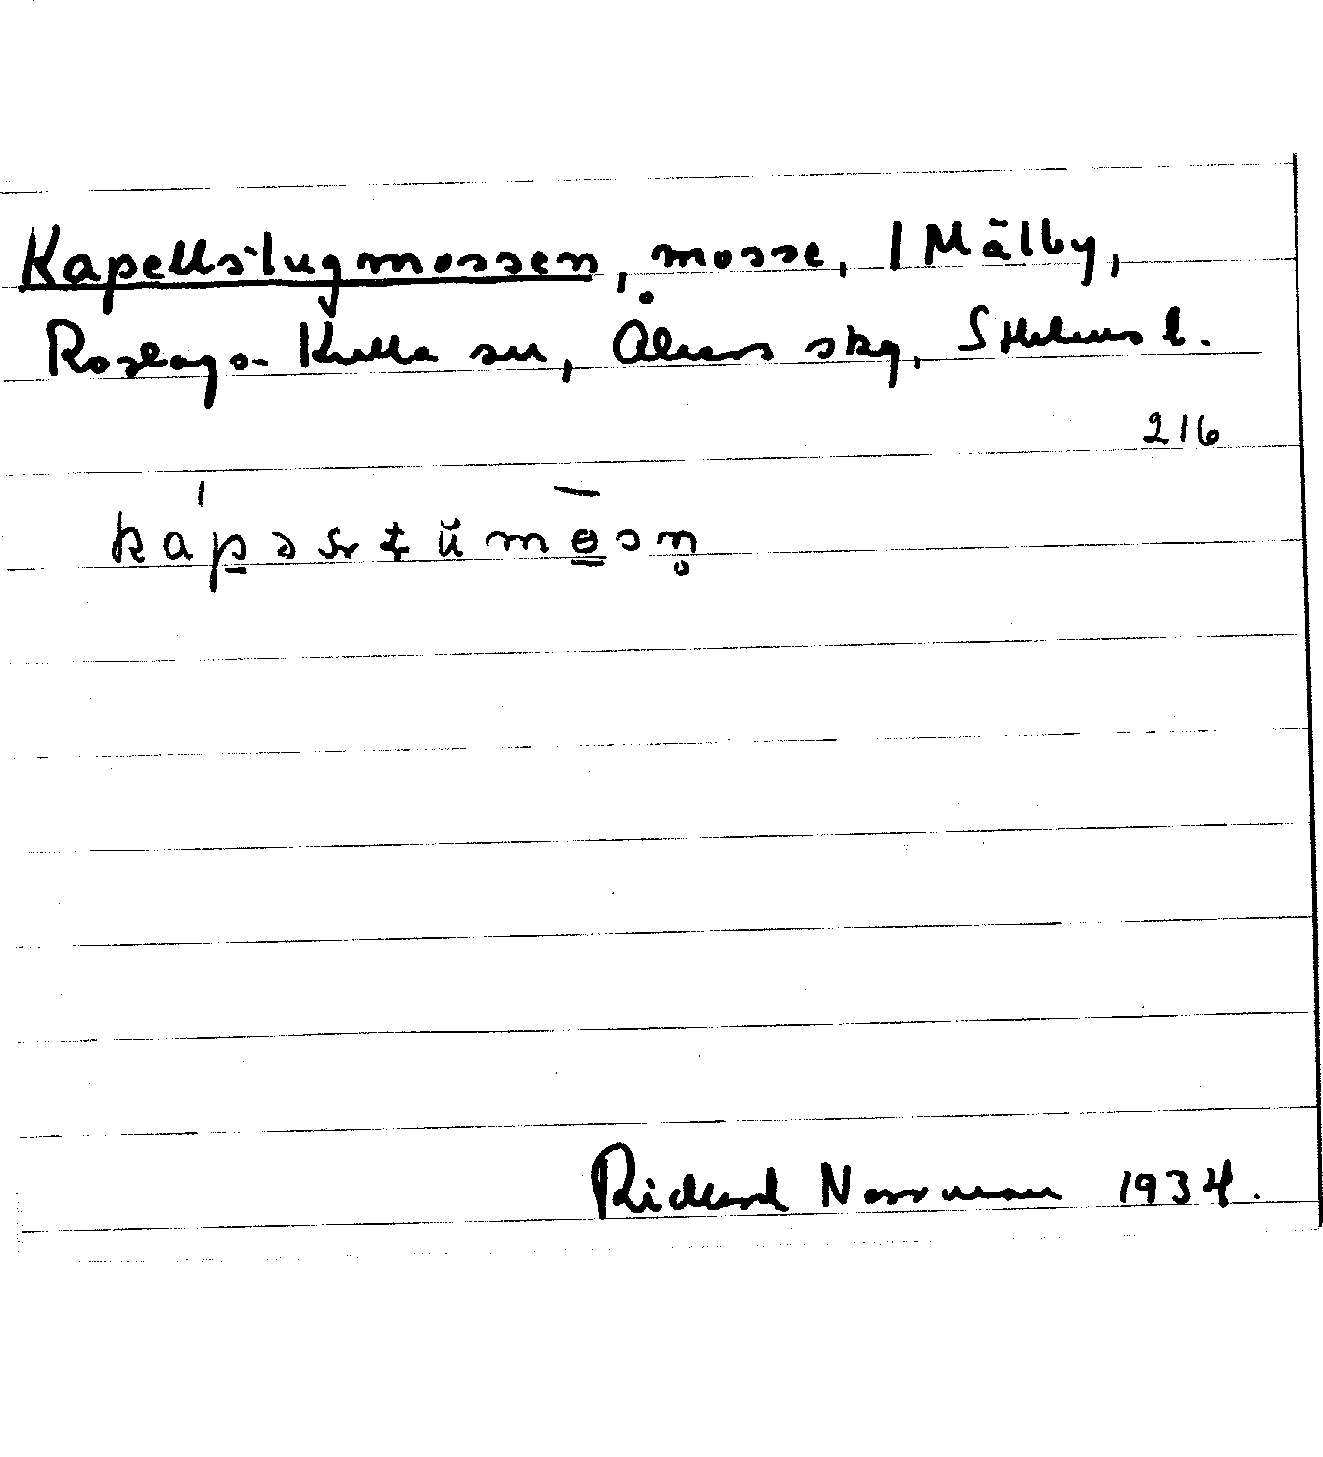 Kapellstugmossen, mosse, 1 Mälby,
Roslags-Kulla sn, Åkers skg, Sthlms l.
216
kap
Richard Norrman 1934.